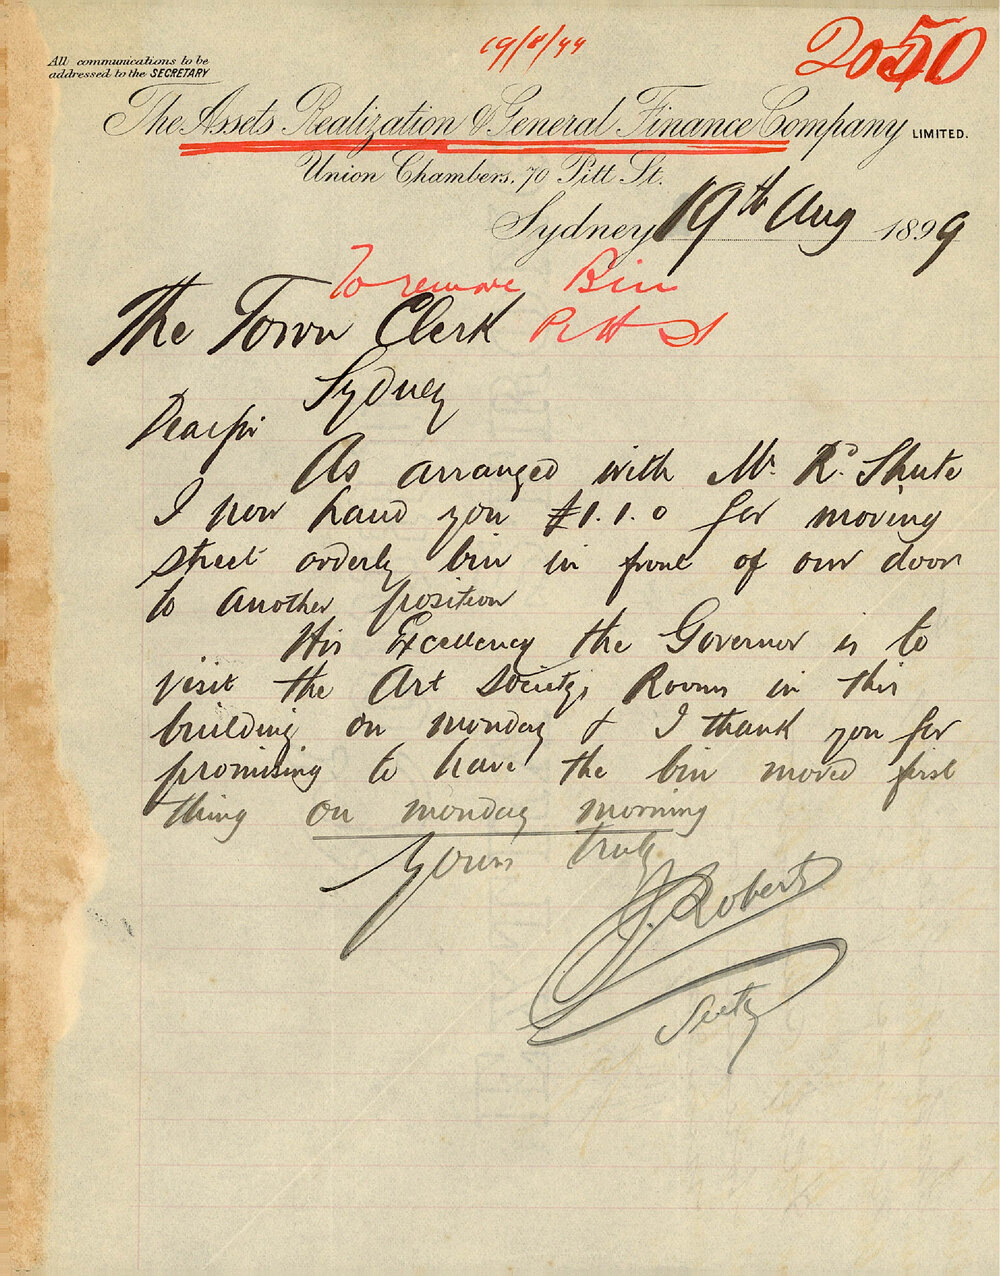 All communications to be
addressed to the SECRETARY
19/8/99
2050
The Assets Realization & General Finance Company LIMITED.
Union Chambers, 70 Pitt St.
Sydney 19th Aug 1899
To remove Bin
Pitt St
The Town Clerk
Sydney
Dear Sir
As arranged with Mr. Rd. Shute
I now hand you £1.1.0 for moving
street orderly bin in front of our door
to another position
His Excellency the Governor is to
visit the Art Society's Rooms in this
building on Monday & I thank you for
promising to have the bin moved first
thing on Monday morning
Yours truly
J. Roberts
Secty